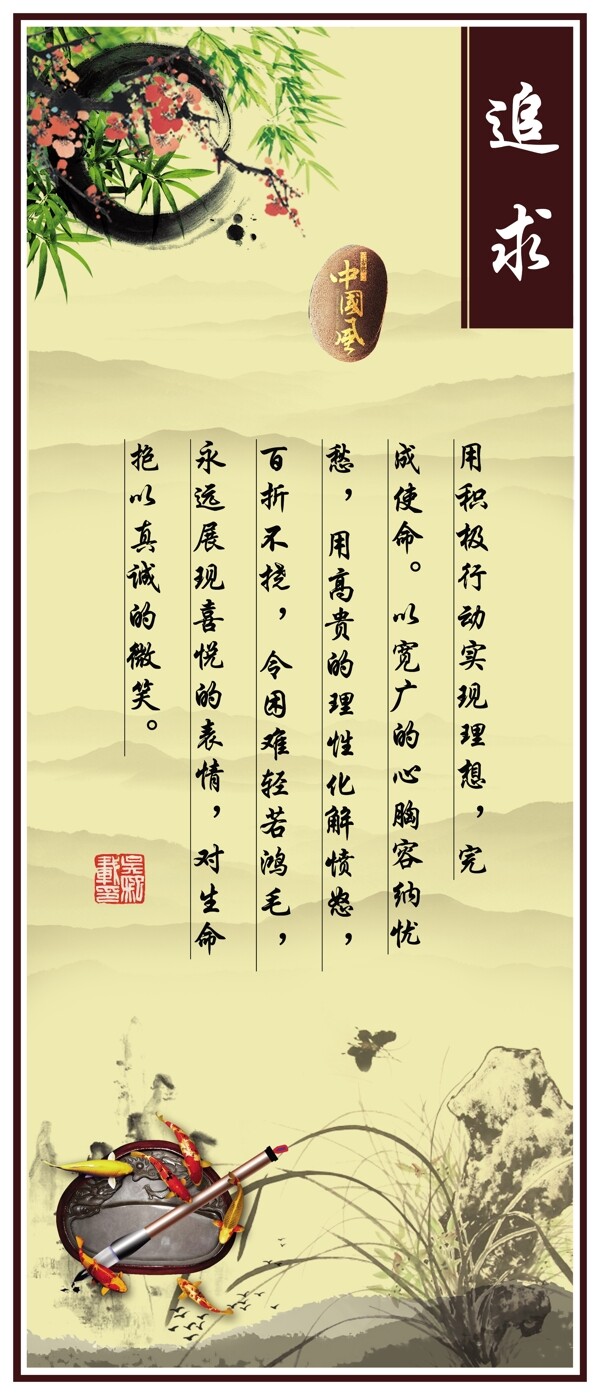 追求
中國風
用积极行动实现理想，完
成使命。以宽广的心胸容纳忧
愁，用高贵的理性化解愤怒，
百折不挠，令困难轻若鸿毛，
永远展现喜悦的表情，对生命
抱以真诚的微笑。